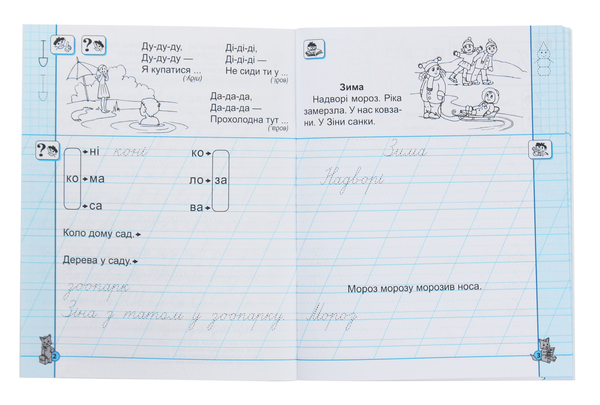 Ду-ду-ду,
Ду-ду-ду —
Я купатися ...
(˙іди)
Ді-ді-ді,
Ді-ді-ді —
Не сиди ти у ...
Да-да-да,
Да-да-да —
Прохолодна тут ...
?
Зима
Надворі мороз. Ріка
замерзла. У нас ковза-
ни. У Зіни санки.
?
ко
ні
ма
са
коні
ко
ло
ва
за
Коло дому сад.
Дерева у саду.
зоопарк
Зіна з татом у зоопарку.
2
Зима
Надворі
Мороз морозу морозив носа.
Мороз
3